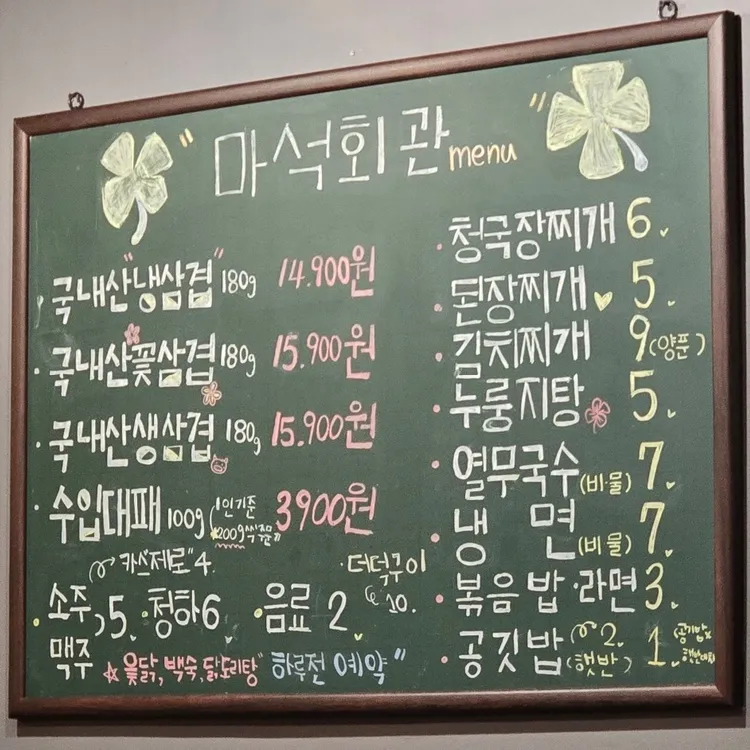 "마석회관 menu"
국내산"냉삼겹" 180g 14.900원
· 국내산꽃삼겹 180g 15.900원
· 국내산생삼겹 180g 15.900원
· 수입대패 100g (1인기준 3900원
카스제로" 4.
소주, 5. ·청하 6 ·음료 2
맥주
· 더덕구이
10.
☆ 옻닭, 백숙, 닭도리탕" 하루전 예약"
· 청국장찌개 6.
· 된장찌개 5.
· 김치찌개 9 (양푼)
· 누룽지탕 5.
· 열무국수 (비·물) 7.
· 냉 면 (비 물) 7.
· 볶음밥·라면 3.
· 공깃밥 2. (햇반) 1.